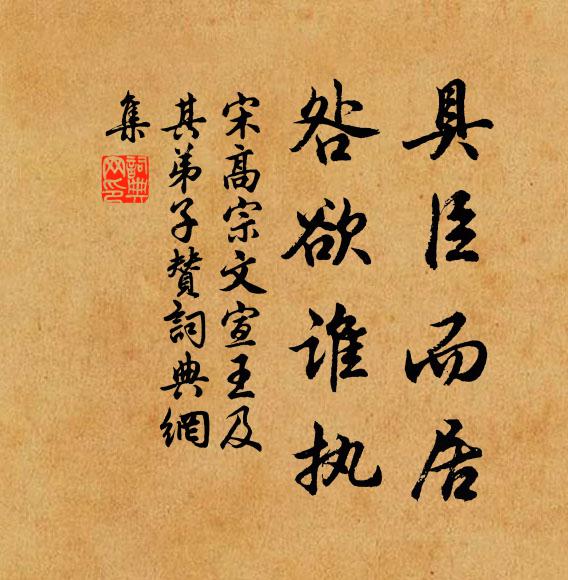 具臣而居
咎欲谁执
宋高宗文宣王及
其弟子赞詞典網
集
詞典
网印